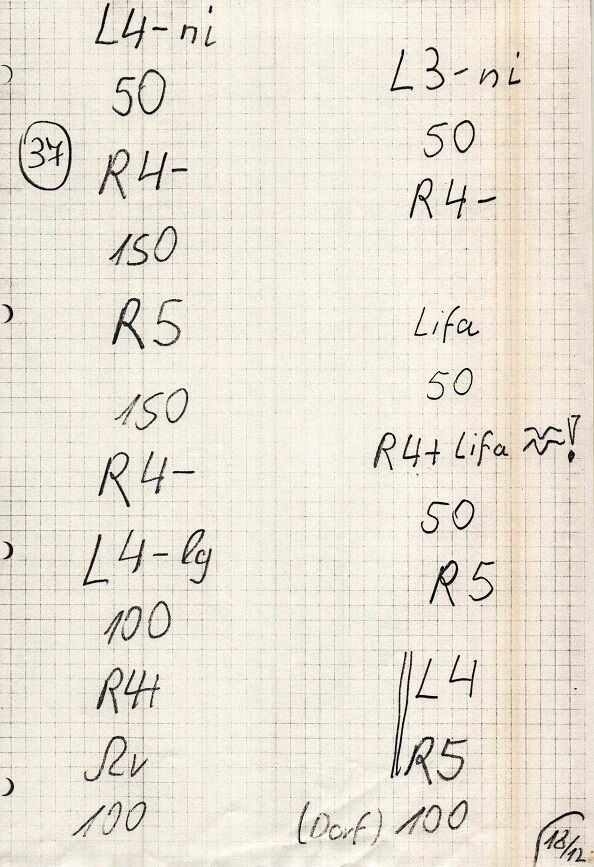 L4-ni
50
37
R4-
150
R5
150
R4-
L4-lg
100
R4+
100
L3-ni
50
R4-
Lifa
50
R4+ Lifa !
50
R5
L4
R5
(Dorf) 100
18/12